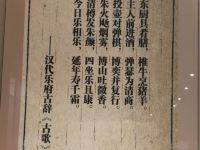 东厨具肴膳，椎牛亨猪羊。
主人前进酒，弹瑟为清商。
投壶对弹棋，博奕并复行。
朱火飏烟雾，博山吐微香。
清樽发朱颜，四坐乐且康。
今日乐相乐，延年寿千霜。
——汉代乐府古辞《古歌》